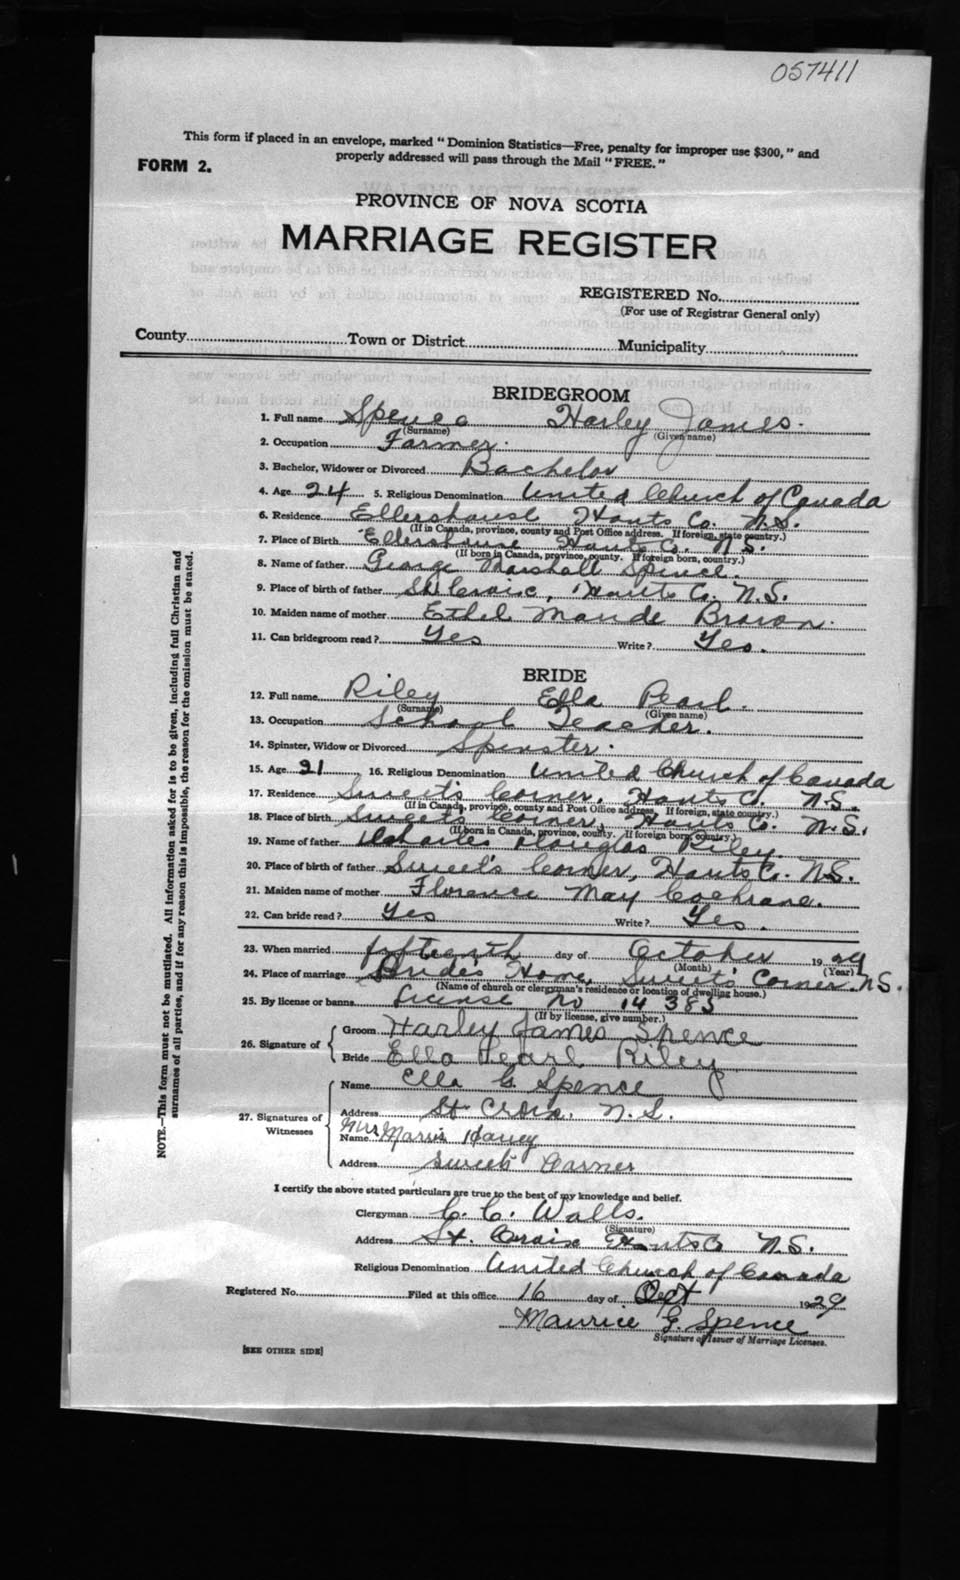 057411
This form if placed in an envelope, marked "Dominion Statistics—Free, penalty for improper use $300," and
properly addressed will pass through the Mail "FREE."
FORM 2.
PROVINCE OF NOVA SCOTIA
MARRIAGE REGISTER
REGISTERED No.
(For use of Registrar General only)
County Town or District Municipality
BRIDEGROOM
1. Full name Spence Harley James.
(Surname) (Given name)
2. Occupation Farmer.
3. Bachelor, Widower or Divorced Bachelor
4. Age 24 5. Religious Denomination United Church of Canada
6. Residence Ellershouse Hants Co. N.S.
(If in Canada, province, county and Post Office address. If foreign, state country.)
7. Place of Birth Ellershouse Hants Co. N.S.
(If born in Canada, province, county. If foreign born, country.)
8. Name of father George Marshall Spence.
9. Place of birth of father St Croix, Hants Co. N.S.
10. Maiden name of mother Ethel Maude Brown.
11. Can bridegroom read? Yes Write? Yes.
BRIDE
12. Full name Riley Ella Pearl.
(Surname) (Given name)
13. Occupation School Teacher.
14. Spinster, Widow or Divorced Spinster.
15. Age 21 16. Religious Denomination United Church of Canada
17. Residence Sweet's Corner, Hants Co. N.S.
(If in Canada, province, county and Post Office address. If foreign, state country.)
18. Place of birth Sweet's Corner, Hants Co. N.S.
(If born in Canada, province, county. If foreign born, country.)
19. Name of father Charles Douglas Riley.
20. Place of birth of father Sweet's Corner, Hants Co. N.S.
21. Maiden name of mother Florence May Cochrane.
22. Can bride read? Yes Write? Yes.
23. When married fifteenth day of October 1929
(Month) (Year)
24. Place of marriage Bride's Home, Sweet's Corner N.S.
(Name of church or clergyman's residence or location of dwelling house.)
25. By license or banns License No 14 383
(If by license, give number.)
26. Signature of
Groom Harley James Spence
Bride Ella Pearl Riley
27. Signatures of Witnesses
Name Ella G Spence
Address St Croix. N.S.
Name Mrs Marris Haney
Address Sweets Corner
I certify the above stated particulars are true to the best of my knowledge and belief.
Clergyman C. C. Walls.
(Signature)
Address St. Croix Hants Co N.S.
Religious Denomination United Church of Canada
Registered No. Filed at this office 16 day of Oct 1929
Maurice G. Spence
Signature of Issuer of Marriage Licenses.
[SEE OTHER SIDE]
NOTE.—This form must not be mutilated. All information asked for is to be given, including full Christian and
surnames of all parties, and if for any reason this is impossible, the reason for the omission must be stated.